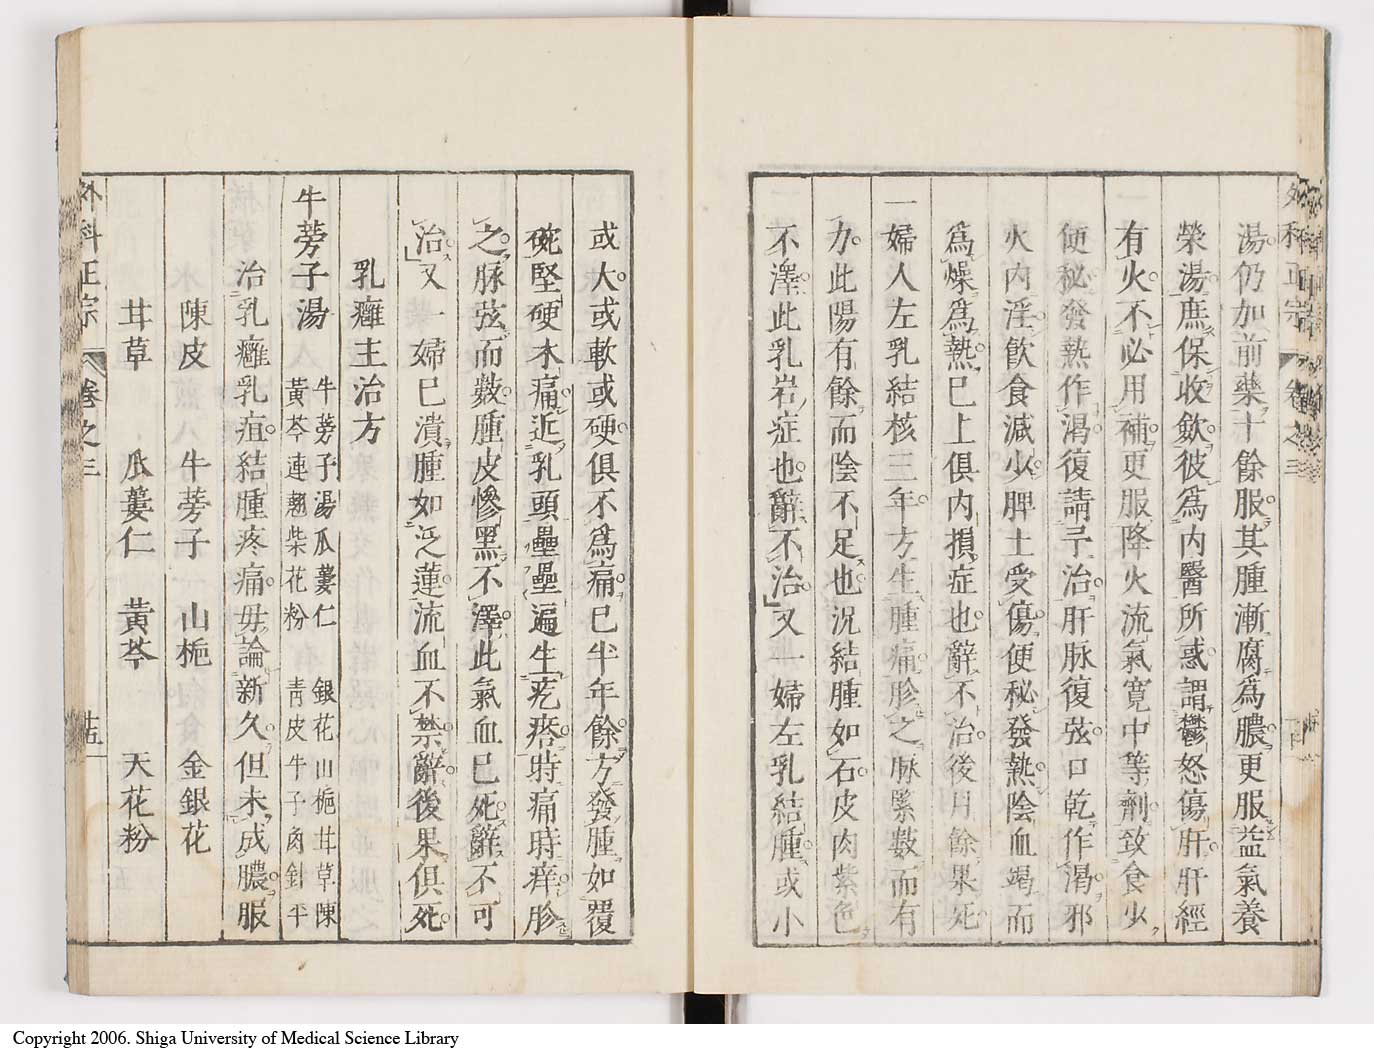 外科正宗 卷之三
湯仍加前藥十餘服其腫漸腐爲膿更服益氣養
榮湯庶保收斂彼爲内醫所惑謂鬱怒傷肝肝經
有火不必用補更服降火流氣寛中等劑致食少
便秘發熱作渴復請予治肝脉復弦口乾作渴邪
火内淫飲食減少脾土受傷便秘發熱陰血竭而
爲燥爲熱已上俱内損症也辭不治後月餘果死
一婦人左乳結核三年方生腫痛胗之脉緊數而有
力此陽有餘而陰不足也况結腫如石皮肉紫色
不澤此乳岩症也辭不治又一婦左乳結腫或小
或大或軟或硬俱不爲痛已半年餘方發腫如覆
碗堅硬木痛近乳頭壘壘遍生疙瘩時痛時痒胗
之脉弦而數腫皮慘黑不澤此氣血已死辭不可
治又一婦已潰腫如泛蓮流血不禁辭後果俱死
乳癰主治方
牛蒡子湯 牛蒡子湯瓜蔞仁 銀花山梔甘草陳
黄芩連翹柴花粉 青皮牛子角針平
治乳癰乳疽結腫疼痛毋論新久但未成膿服
陳皮 牛蒡子 山梔 金銀花
甘草 瓜蔞仁 黄芩 天花粉
外科正宗 卷之三 廿五
Copyright 2006. Shiga University of Medical Science Library